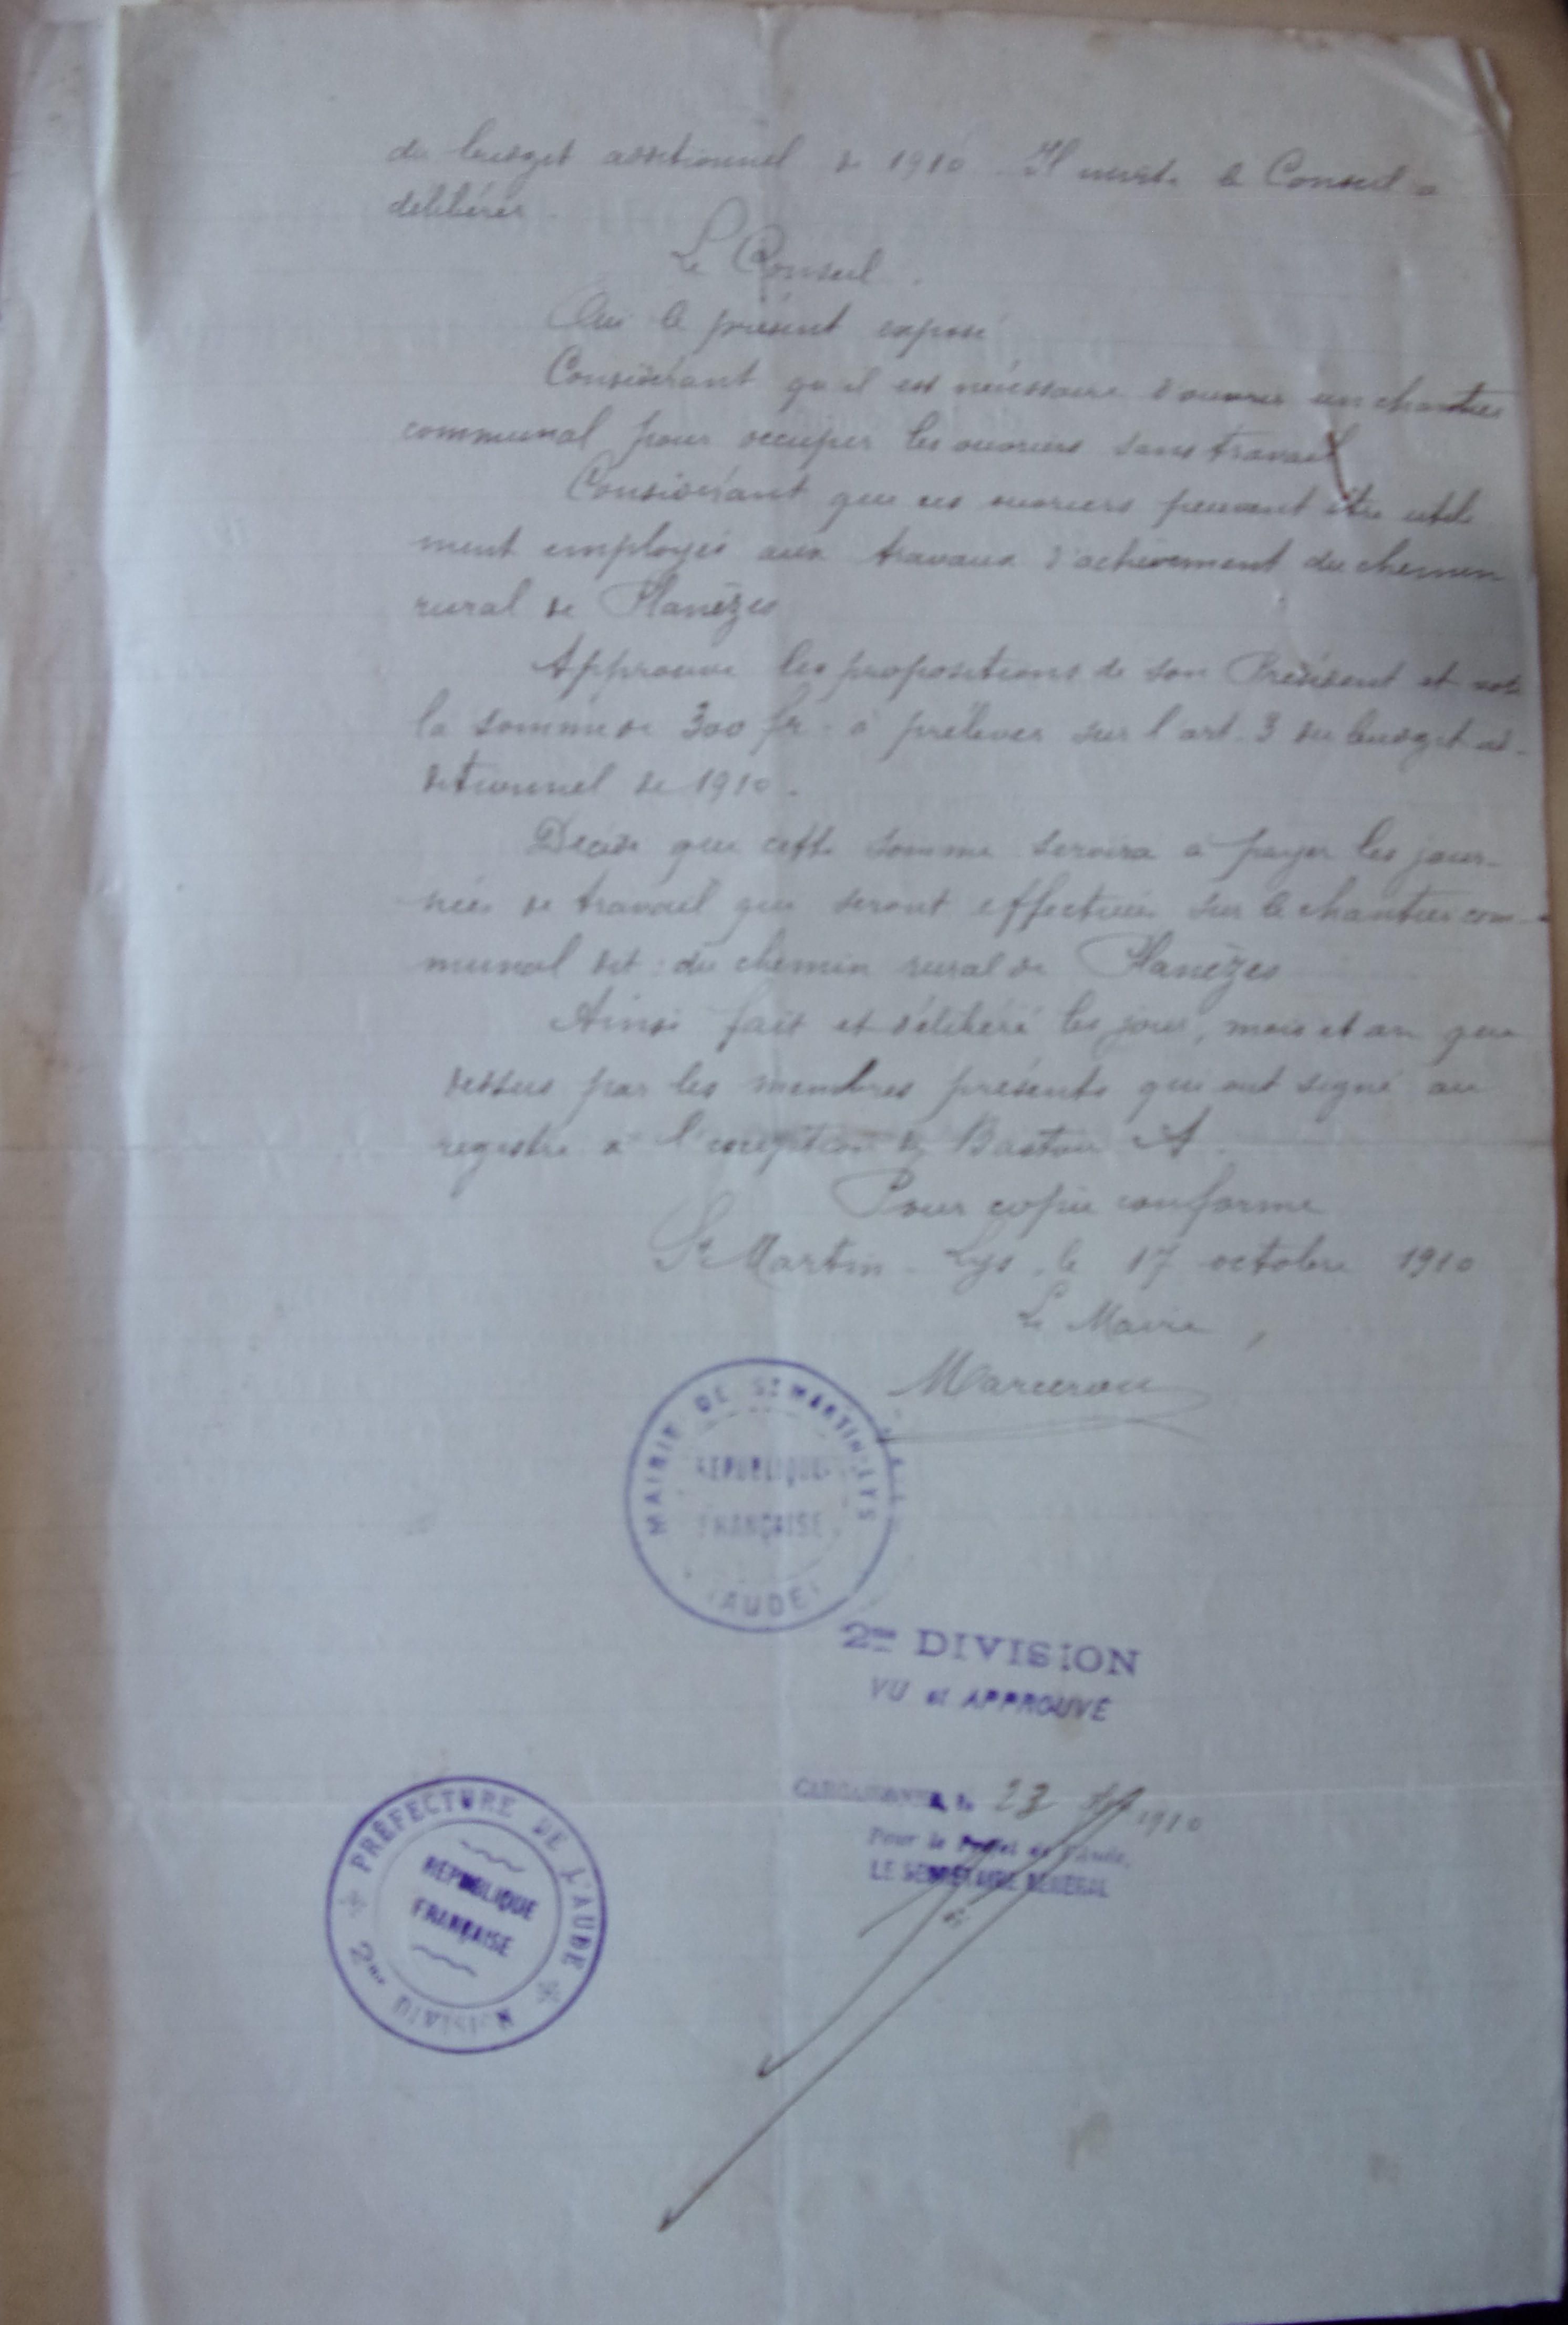 du budget additionnel de 1910. Il invite le Conseil à
délibérer.
Le Conseil.
Oui le présent exposé
Considérant qu'il est nécessaire d'ouvrir un chantier
communal pour occuper les ouvriers sans travail
Considérant que ces ouvriers peuvent être utile
ment employés aux travaux d'achèvement du chemin
rural de Planèzes
Approuve les propositions de son Président et vote
la somme de 300 fr. à prélever sur l'art. 3 du budget ad-
ditionnel de 1910.
Décide que cette somme servira à payer les jour-
nées de travail qui seront effectuées sur le chantier com-
munal dit : du chemin rural de Planèzes
Ainsi fait et délibéré les jour, mois et an que
dessus par les membres présents qui ont signé au
registre à l'exception de A.
Pour copie conforme
St Martin-Lys, le 17 octobre 1910
Le Maire,
Marcerou
MAIRIE DE ST MARTIN-LYS
RÉPUBLIQUE
FRANÇAISE
(AUDE)
2me DIVISION
VU et APPROUVÉ
CARCASSONNE, le 23 1910
Pour le Préfet de l'Aude,
LE SECRÉTAIRE GÉNÉRAL
PRÉFECTURE DE L'AUDE
RÉPUBLIQUE
FRANÇAISE
2me DIVISION